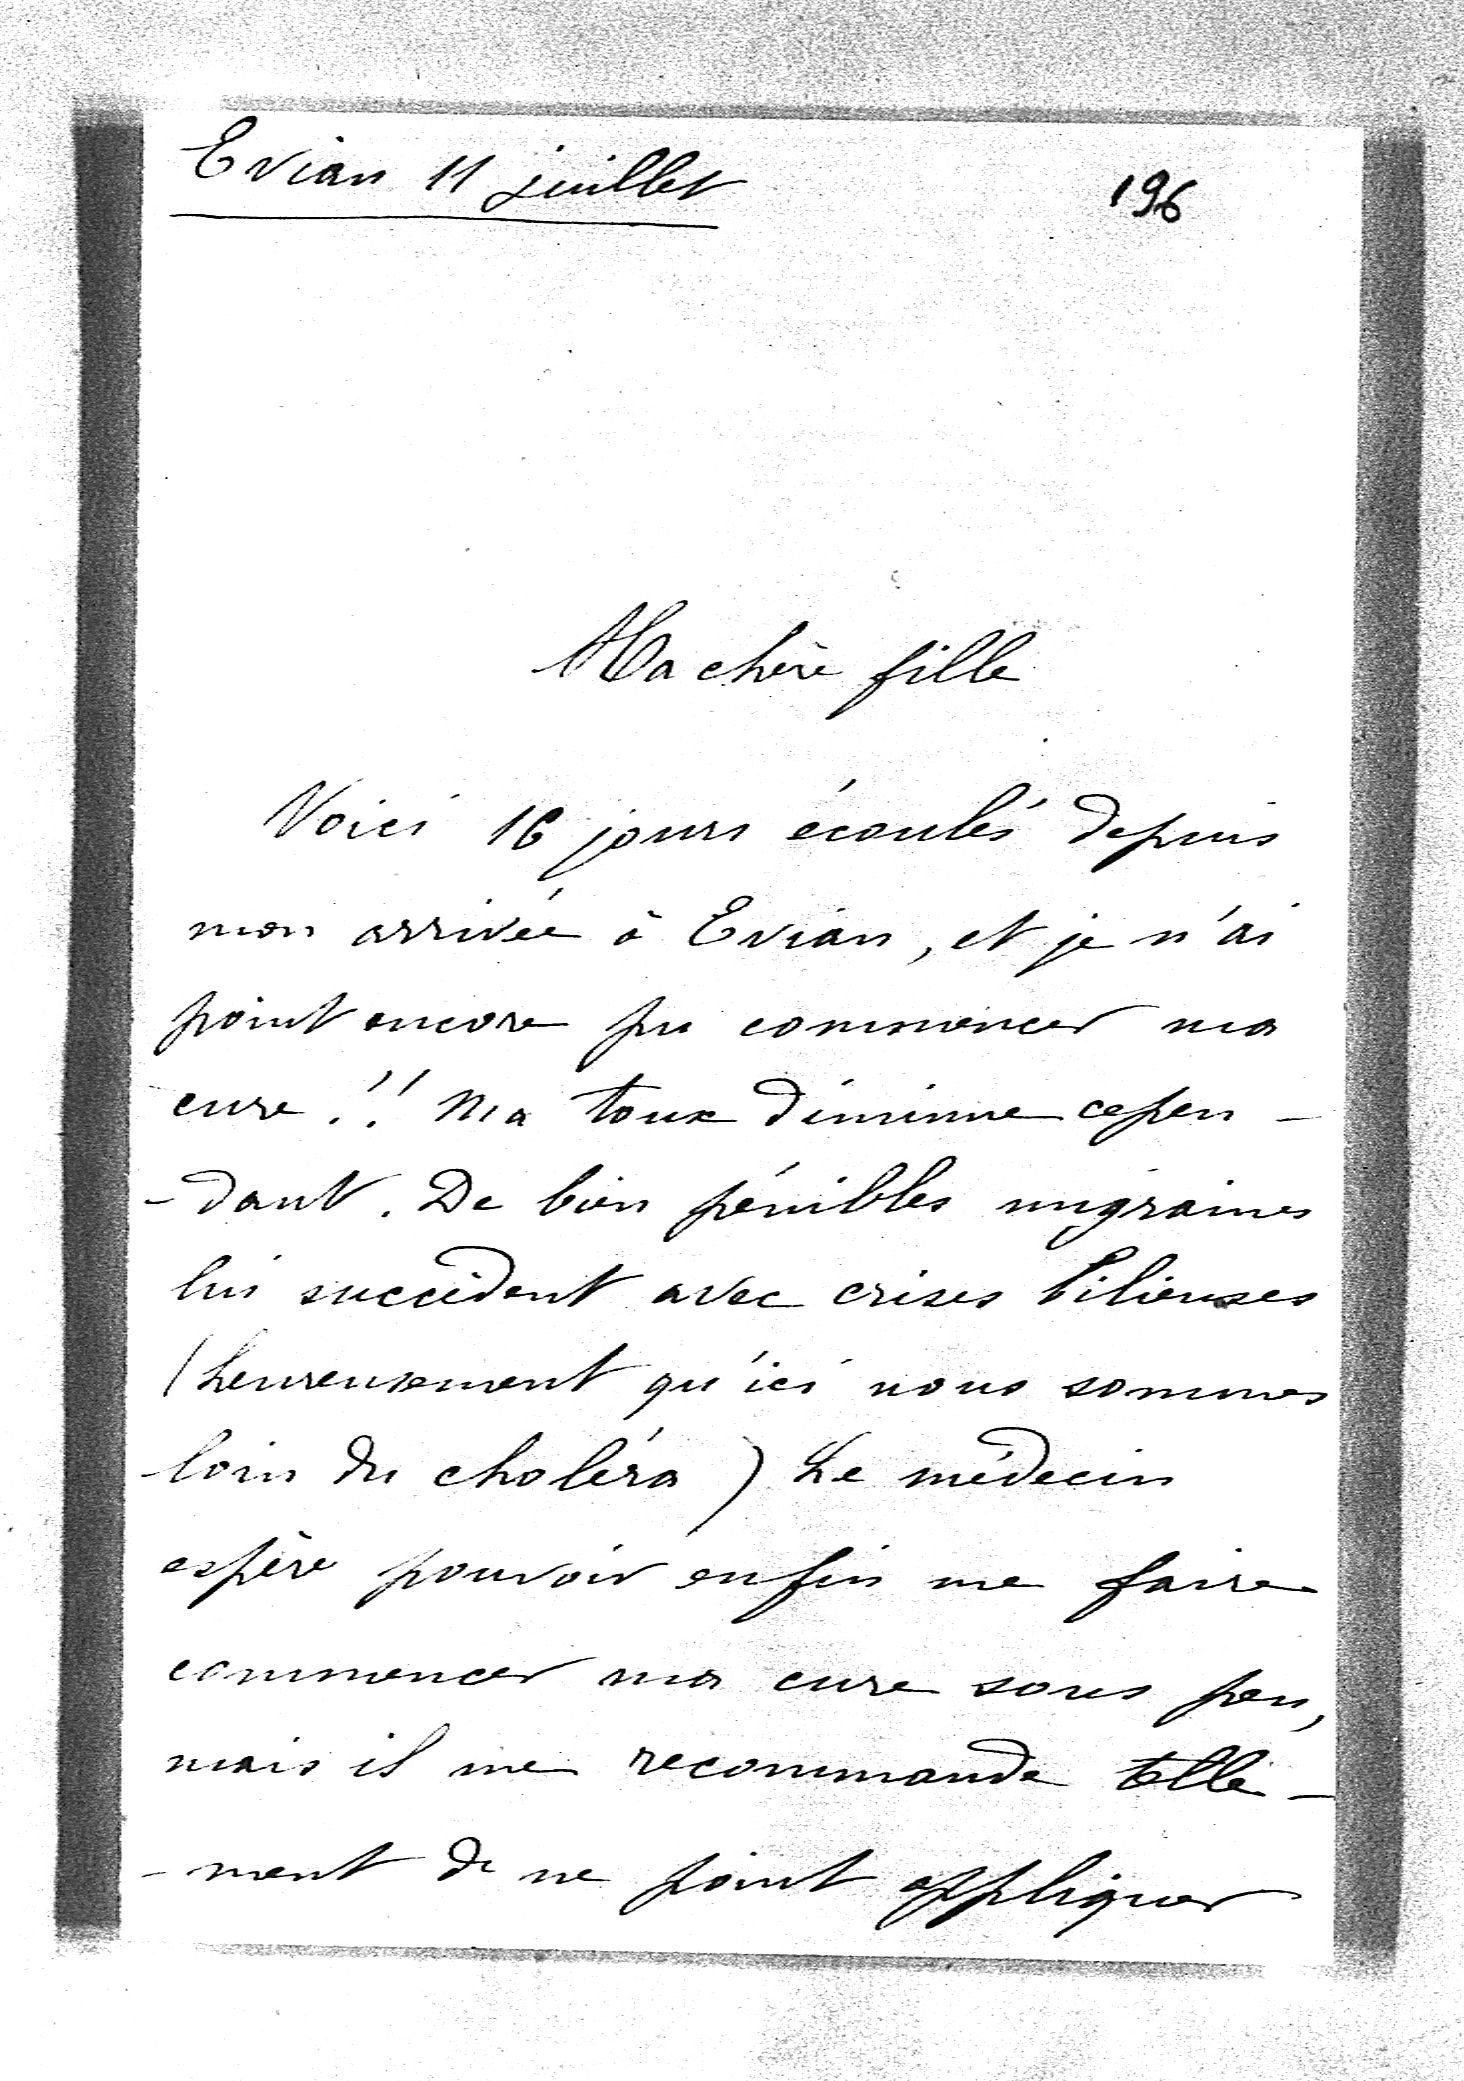 Evian 11 juillet
196
Ma chère fille
Voici 16 jours écoulés depuis
mon arrivée à Evian, et je n'ai
point encore pu commencer ma
cure !! Ma toux diminue cepen-
-dant. De bien pénibles migraines
lui succèdent avec crises bilieuses
(heureusement qu'ici nous sommes
loin du choléra) Le médecin
espère pouvoir enfin me faire
commencer ma cure sous peu,
mais il me recommande telle-
-ment de ne point appliquer